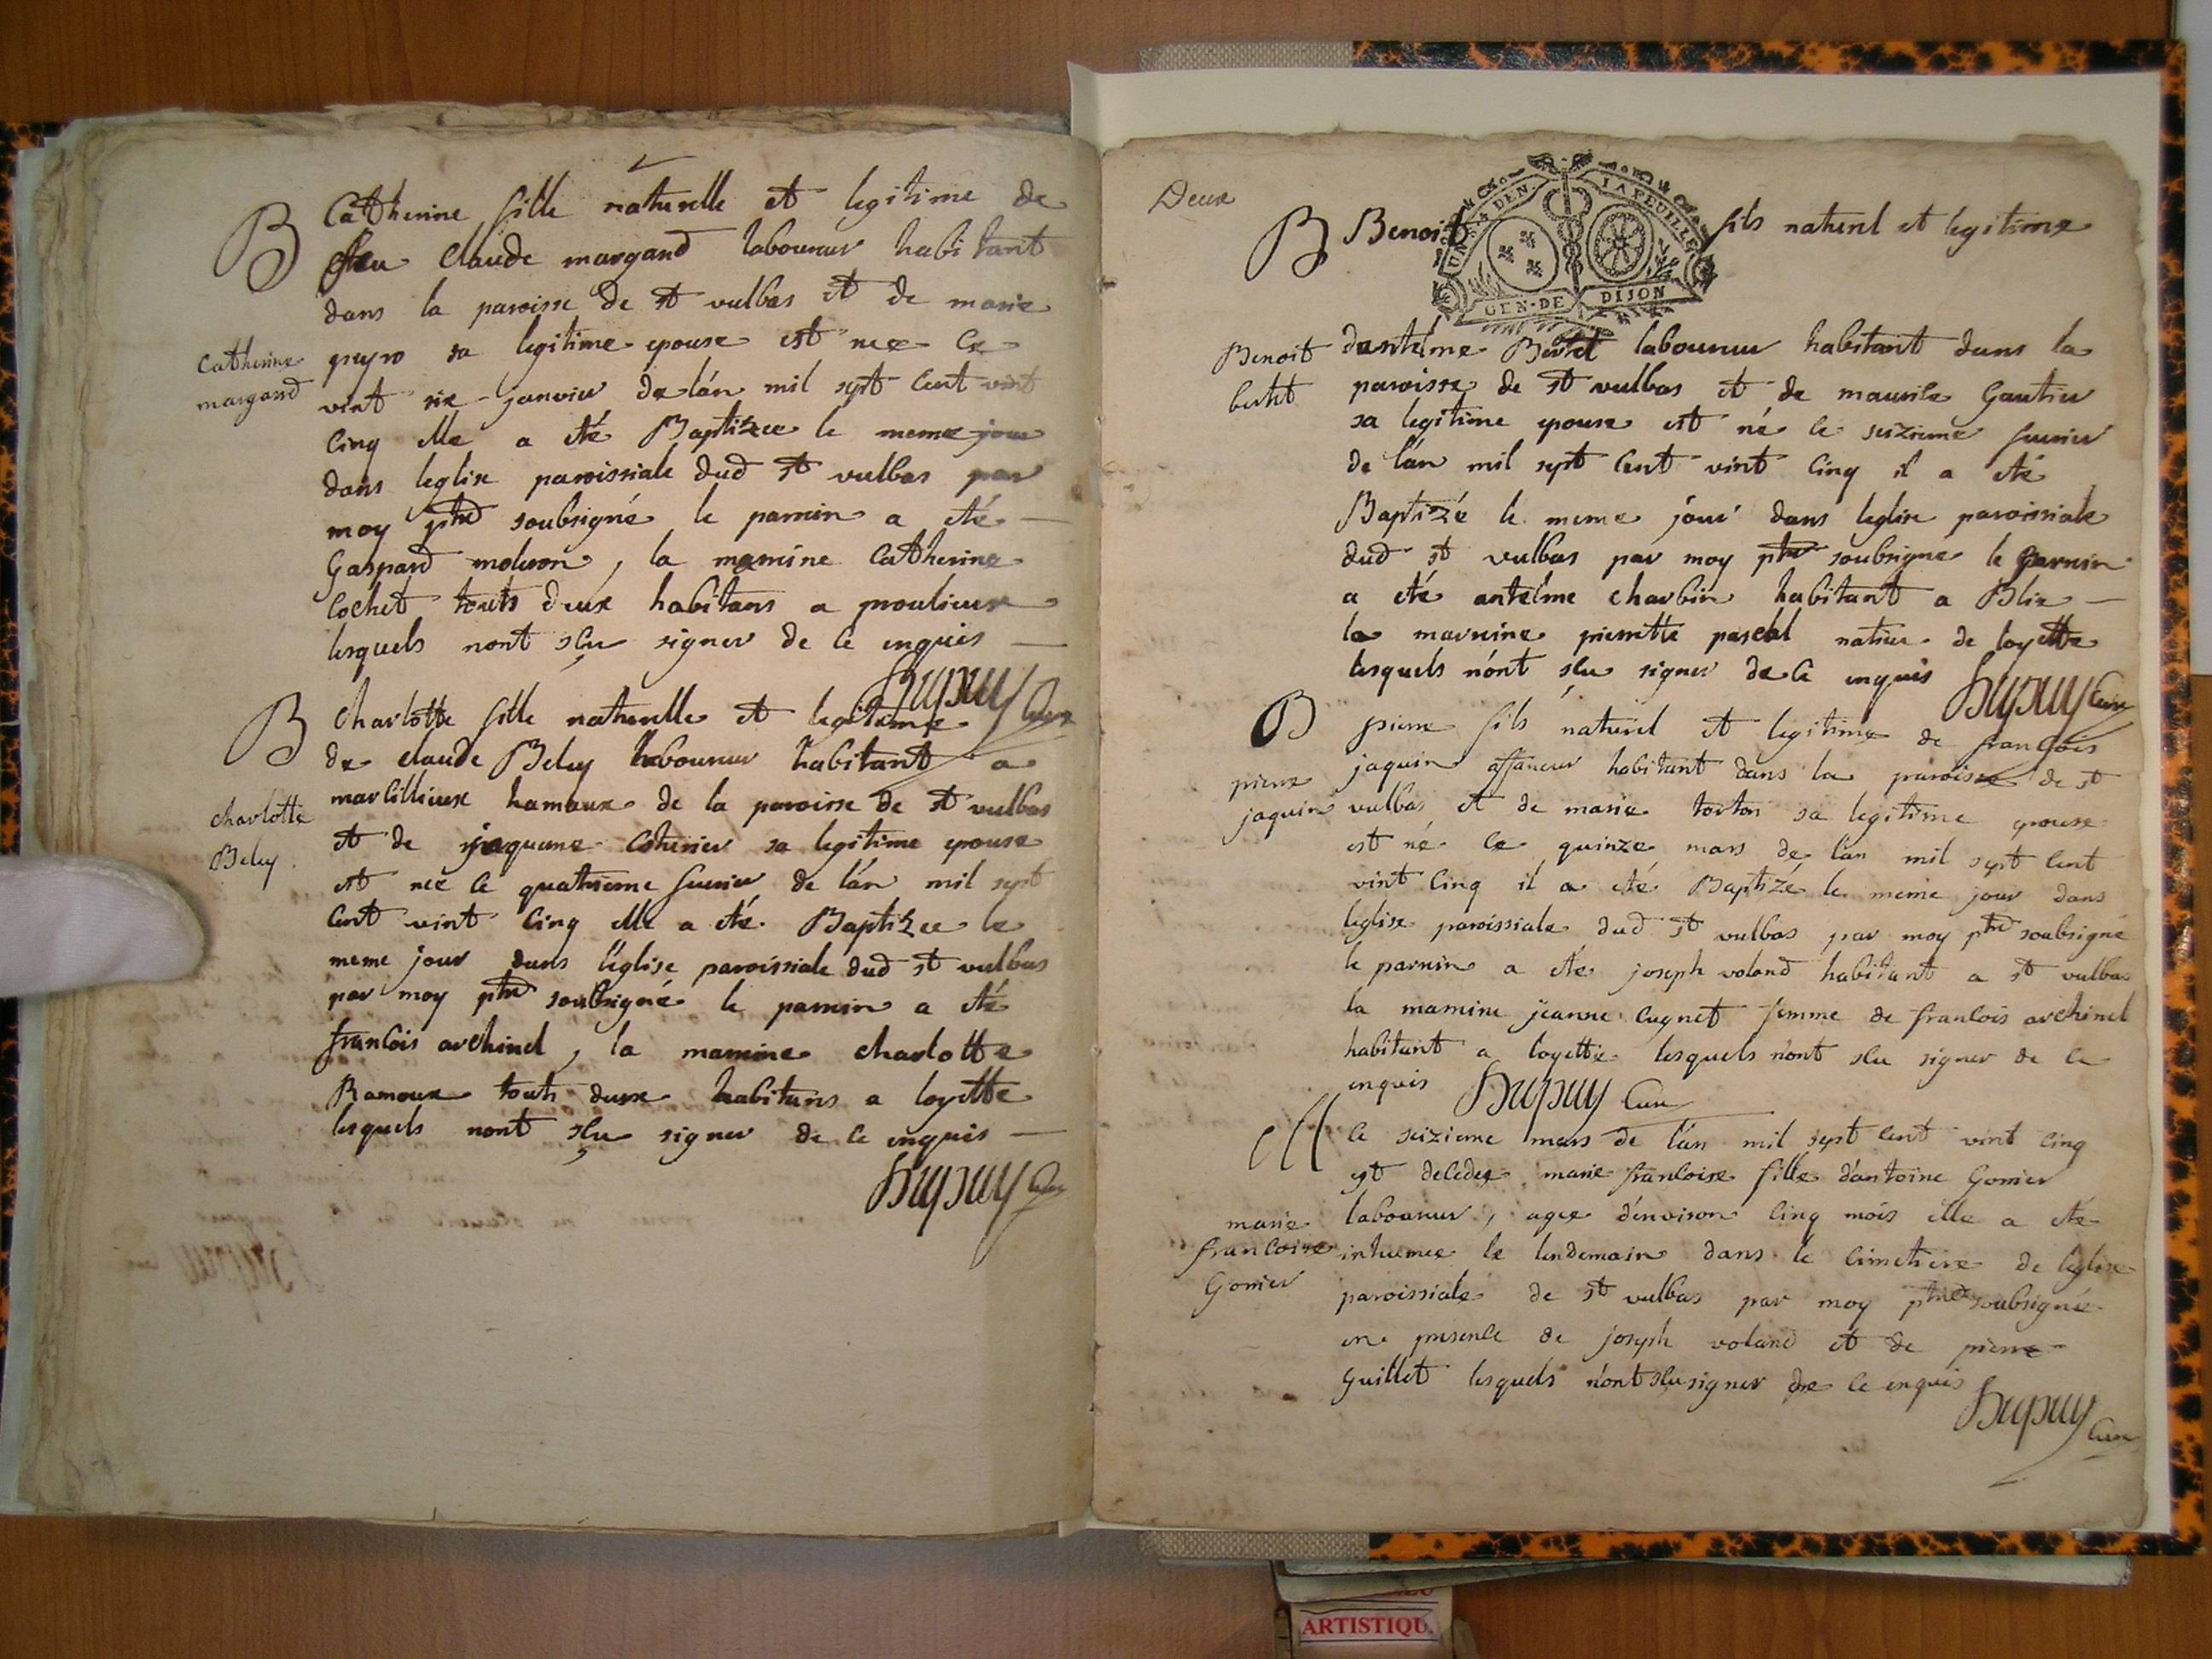 B Catherine fille naturelle et legitime de
feu claude margand laboureur habitant
dans la paroisse de st vulbas et de marie
Catherine margand
sa legitime epouse est nee le
vint six janvier de lán mil sept cent vint
cinq elle a eté Baptizee le meme jour
dans leglise paroissiale dud st vulbas par
moy ptre soubsigné le parrin a eté
Gaspard moluron, la marrine Catherine
Cochet touts deux habitans a proulieux
lesquels nont sçu signer de ce enquis
Dupuy Cure
B charlotte fille naturelle et legitime
de claude Beley laboureur habitant a
charlotte Beley
marcillieux hamaux de la paroisse de st vulbas
et de jaqueme Cotherier sa legitime epouse
est neé le quatrieme feurier de lán mil sept
cent vint cinq elle a eté Baptizee le
meme jour dans léglise paroissiale dud st vulbas
par moy ptre soubsigné le parrin a eté
francois archinel, la marrine charlotte
Ramoux touts deux habitans a loyette
lesquels nont sçu signer de ce enquis
Dupuy Cure
Deux
UN S 4 DEN. LA FEUILLE
GEN. DE DIJON
B Benoit fils naturel et legitime
Benoit bertet
dantelme Bertet laboureur habitant dans la
paroisse de st vulbas et de maurile Gautier
sa legitime epouse est né le seizieme feurier
de lán mil sept cent vint cinq il a eté
Baptizé le meme jour dans leglise paroissiale
dud st vulbas par moy ptre soubsigné le parrin
a eté antelme charbin habitant a Blie
la marrine pierrette pascal natiue de loyette
lesquels nónt sçu signer de ce enquis
Dupuy Cure
B pierre fils naturel et legitime de francois
pierre jaquin
jaquin affaneur habitant dans la paroisse de st
vulbas et de marie torton sa legitime epouse
est né le quinze mars de lán mil sept cent
vint cinq il a eté Baptizé le meme jour dans
leglise paroissiale dud st vulbas par moy ptre soubsigné
le parrin a eté joseph voland habitant a st vulbas
la marrine jeanne cugnet femme de francois archinel
habitant a loyette lesquels nónt sçu signer de ce
enquis Dupuy Cure
M le seizieme mars de lán mil sept cent vint cinq
est decedee marie francoise fille dántoine Gonier
marie francoise Gonier
laboureur, agee dénviron cinq mois elle a eté
inhumee le lendemain dans le cimetiere de leglise
paroissiale de st vulbas par moy ptre soubsigné
en presence de joseph voland et de pierre
Guillet lesquels nónt sçu signer de ce enquis
Dupuy Cure
ARTISTIQU